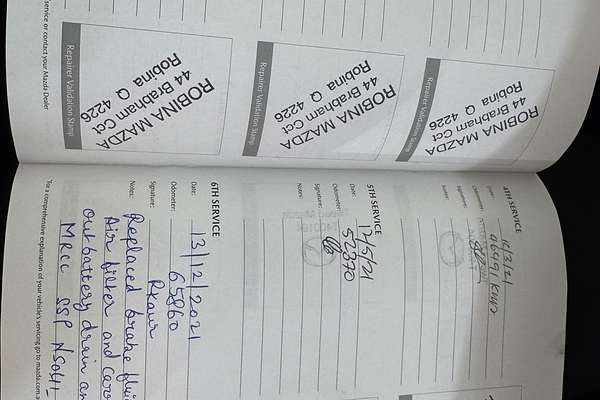 service or contact your Mazda Dealer
Repairer Validation Stamp
ROBINA MAZDA
44 Brabham Cct
Robina Q 4226
Repairer Validation Stamp
ROBINA MAZDA
44 Brabham Cct
Robina Q 4226
Repairer Validation Stamp
ROBINA MAZDA
44 Brabham Cct
Robina Q 4226
4TH SERVICE
Date:
Odometer: 46491 Kms
Signature:
Notes:
5TH SERVICE
Date: 17/5/21
Odometer: 52370
Signature:
Notes:
6TH SERVICE
Date: 13/12/2021
Odometer: 65860
Signature: Rkaur
Notes: Replaced brake flui
Air filter and
out battery drain an
MRCC SSP
For a comprehensive explanation of your vehicle's servicing go to mazda.com.a